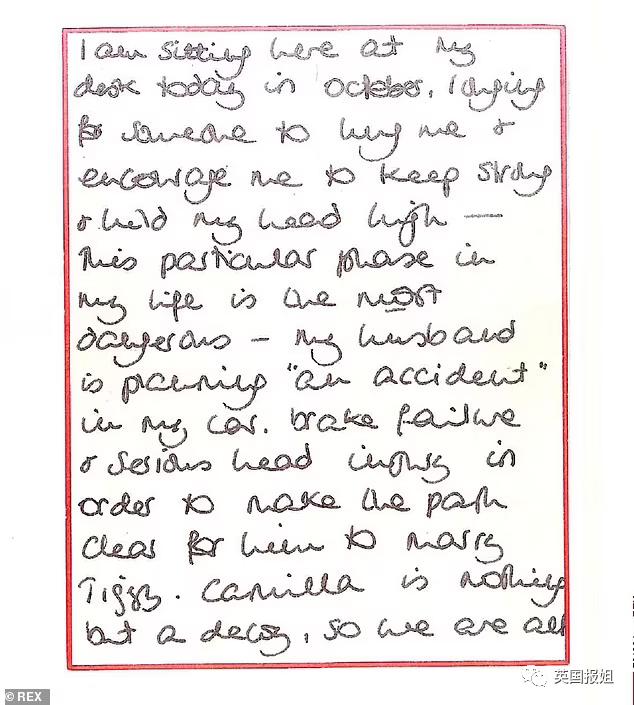 I am sitting here at my
desk today in october, longing
for someone to hug me &
encourage me to keep strong
& hold my head high —
This particular phase in
my life is the most
dangerous – my husband
is planning "an accident"
in my car. brake failure
& serious head injury in
order to make the path
clear for him to marry
Tiggy. Camilla is nothing
but a decoy, so we are all
© REX
英国报姐